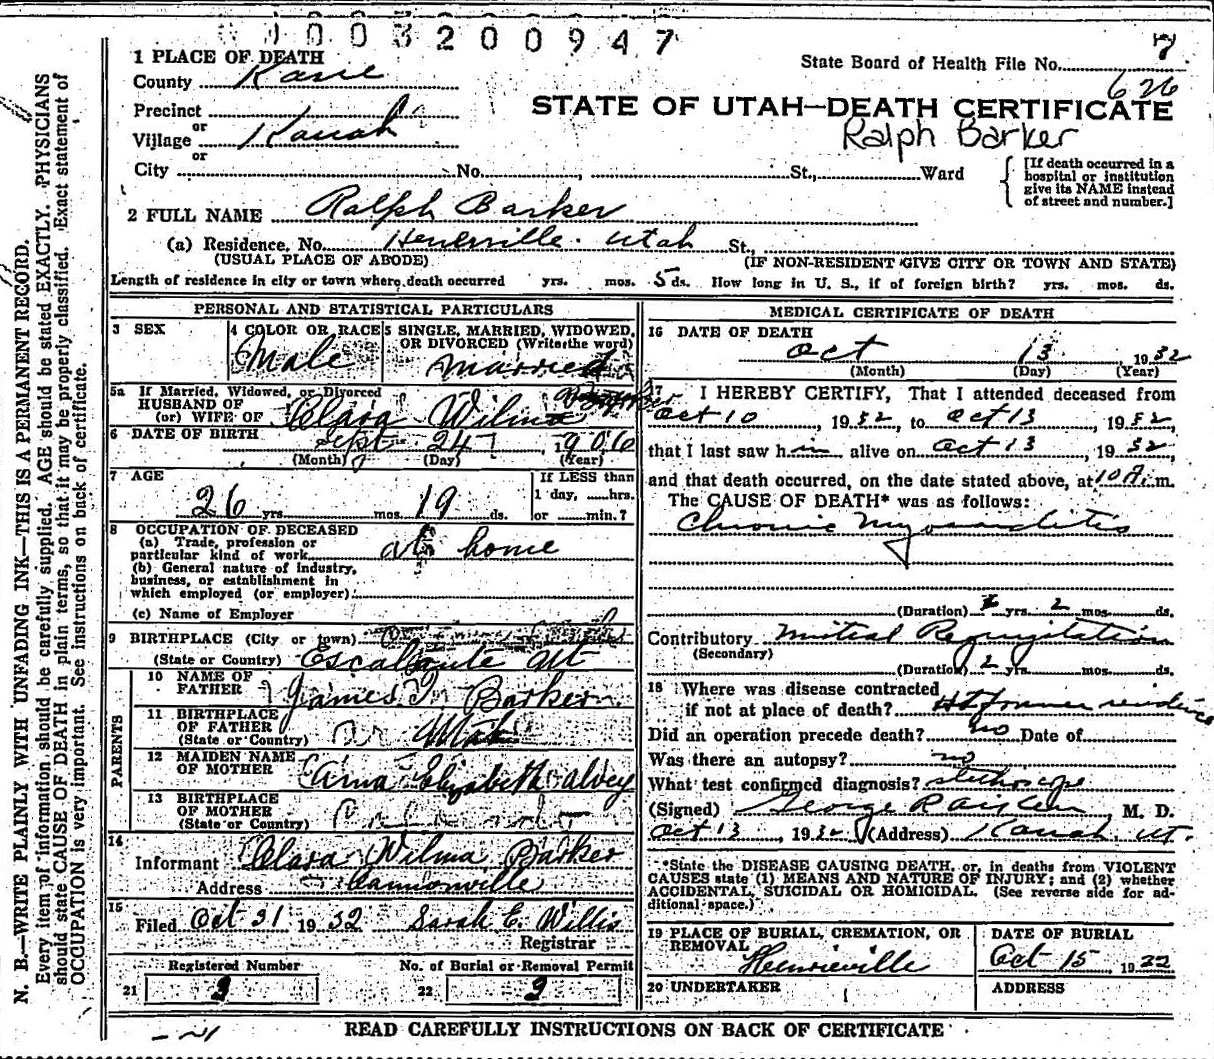 003200947
7
1 PLACE OF DEATH
State Board of Health File No.
626
County Kane
STATE OF UTAH—DEATH CERTIFICATE
Ralph Barker
Precinct
or
Village Kanab
or
City No. St., Ward
[If death occurred in a hospital or institution give its NAME instead of street and number.]
2 FULL NAME Ralph Barker
(a) Residence, No. Henrieville. Utah St.,
(USUAL PLACE OF ABODE)
(IF NON-RESIDENT GIVE CITY OR TOWN AND STATE)
Length of residence in city or town where death occurred yrs. mos. 5 ds. How long in U. S., if of foreign birth? yrs. mos. ds.
PERSONAL AND STATISTICAL PARTICULARS
3 SEX
4 COLOR OR RACE
5 SINGLE, MARRIED, WIDOWED,
OR DIVORCED (Write the word)
Male
Married
5a If Married, Widowed, or Divorced
HUSBAND OF
(or) WIFE OF Clara Wilma
6 DATE OF BIRTH
Sept 24, 1906
(Month) (Day) (Year)
7 AGE
26 yrs. mos. 19 ds.
If LESS than
1 day, hrs.
or min.?
8 OCCUPATION OF DECEASED
(a) Trade, profession or
particular kind of work at home
(b) General nature of industry,
business, or establishment in
which employed (or employer).
(c) Name of Employer
9 BIRTHPLACE (City or town)
(State or Country) Escalante Ut
PARENTS
10 NAME OF
FATHER James Barker
11 BIRTHPLACE
OF FATHER
(State or Country) Utah
12 MAIDEN NAME
OF MOTHER Anna Elizabeth Alvey
13 BIRTHPLACE
OF MOTHER
(State or Country)
14
Informant Clara Wilma Barker
Address Cannonville
15
Filed Oct 31 1932 Sarah E. Willis
Registrar
Registered Number
No. of Burial or Removal Permit
21 9
22 9
MEDICAL CERTIFICATE OF DEATH
16 DATE OF DEATH
Oct 13 1932
(Month) (Day) (Year)
17 I HEREBY CERTIFY, That I attended deceased from
Oct 10, 1932, to Oct 13, 1932,
that I last saw him alive on Oct 13, 1932
and that death occurred, on the date stated above, at 10 A. m.
The CAUSE OF DEATH* was as follows:
Chronic Myocarditis
(Duration) yrs. 2 mos. ds.
Contributory Mitral Regurgitation
(Secondary)
(Duration) 2 yrs. mos. ds.
18 Where was disease contracted
if not at place of death? At former residence
Did an operation precede death? no Date of
Was there an autopsy? no
What test confirmed diagnosis? stethoscope
(Signed) George R Aiken M. D.
Oct 13, 1932 (Address) Kanab. Ut.
*State the DISEASE CAUSING DEATH, or, in deaths from VIOLENT
CAUSES state (1) MEANS AND NATURE OF INJURY; and (2) whether
ACCIDENTAL, SUICIDAL OR HOMICIDAL. (See reverse side for ad-
ditional space.)
19 PLACE OF BURIAL, CREMATION, OR
REMOVAL
Henrieville
DATE OF BURIAL
Oct 15, 1932
20 UNDERTAKER
ADDRESS
READ CAREFULLY INSTRUCTIONS ON BACK OF CERTIFICATE
N. B.—WRITE PLAINLY WITH UNFADING INK—THIS IS A PERMANENT RECORD.
Every item of information should be carefully supplied. AGE should be stated EXACTLY. PHYSICIANS
should state CAUSE OF DEATH in plain terms, so that it may be properly classified. Exact statement of
OCCUPATION is very important. See instructions on back of certificate.